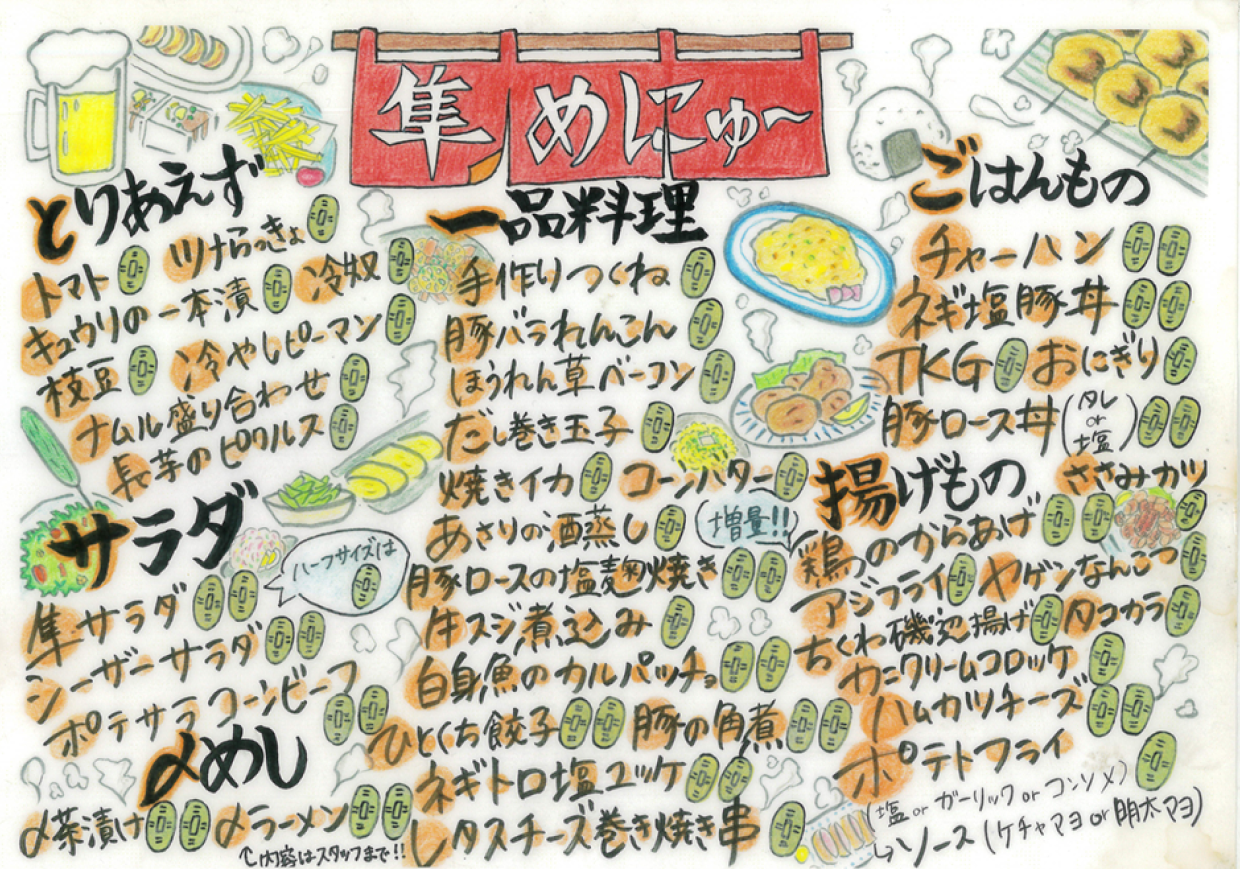 隼めにゅ〜
とりあえず
トマト
ツナらっきょ
キュウリの一本漬
冷奴
枝豆
冷やしピーマン
ナムル盛り合わせ
長芋のピクルス
サラダ
ハーフサイズは
隼サラダ
シーザーサラダ
ポテサラコーンビーフ
〆めし
〆茶漬け
〆ラーメン
↑内容はスタッフまで!!
一品料理
手作りつくね
豚バラれんこん
ほうれん草ベーコン
だし巻き玉子
焼きイカ
コーンバター
あさりの酒蒸し
(増量!!)
豚ロースの塩麹焼き
牛スジ煮込み
白身魚のカルパッチョ
ひとくち餃子
豚の角煮
ネギトロ塩ユッケ
レタスチーズ巻き焼き串
ごはんもの
チャーハン
ネギ塩豚丼
TKG
おにぎり
豚ロース丼(タレor塩)
揚げもの
ささみカツ
鶏のからあげ
アジフライ
ヤゲンなんこつ
ちくわ磯辺揚げ
タコカラ
カニクリームコロッケ
ハムカツチーズ
ポテトフライ
(塩orガーリックorコンソメ)
↳ソース(ケチャマヨor明太マヨ)